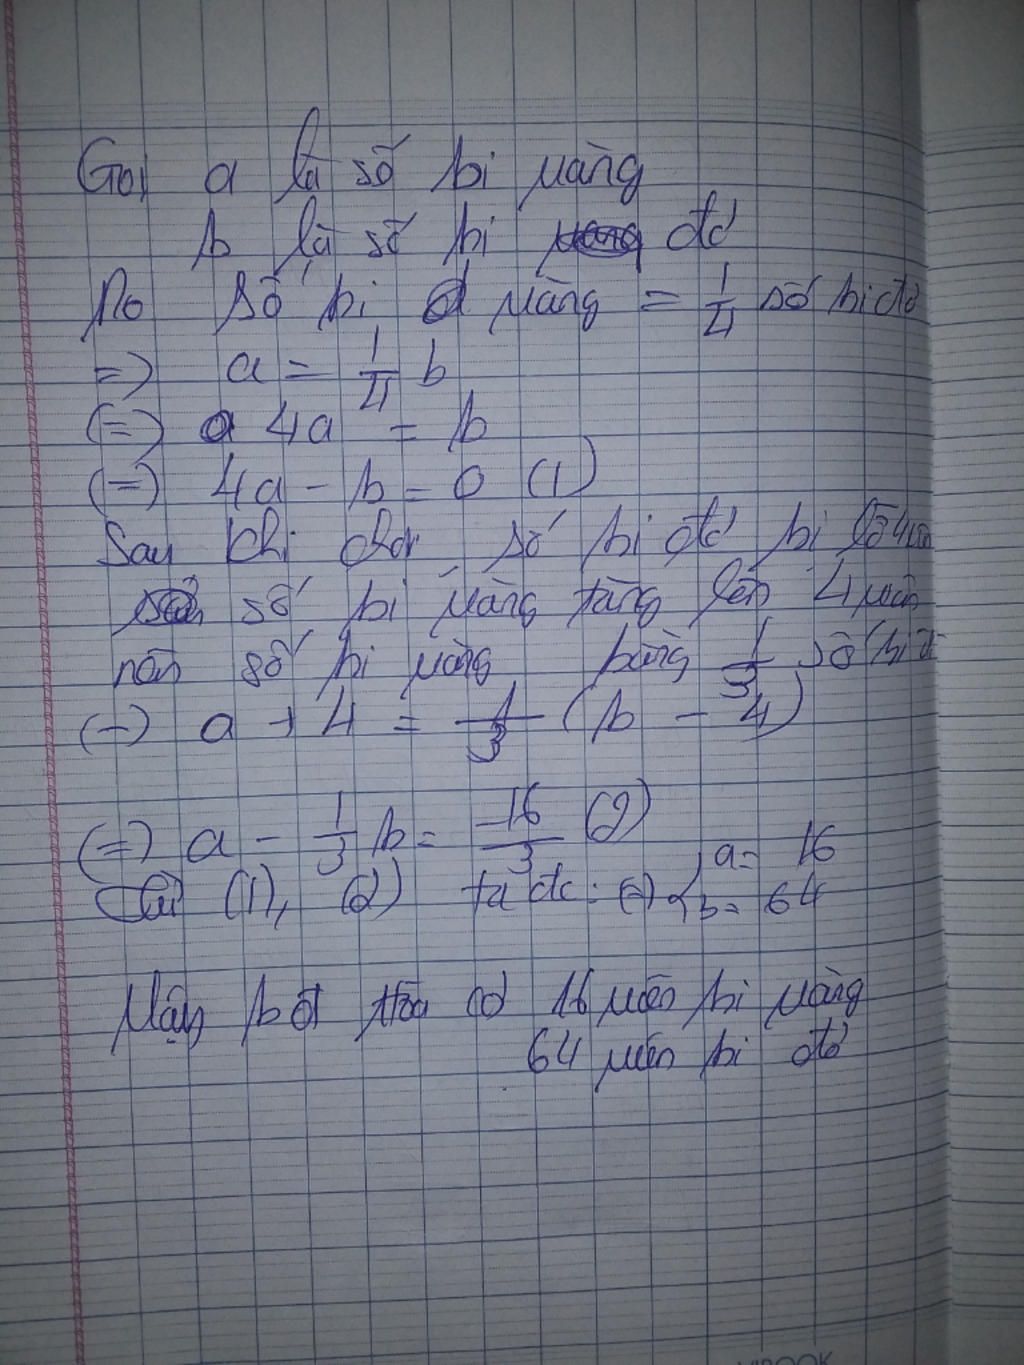 Gọi a là số bi vàng
b là số bi đỏ
Do số bi vàng = 1/4 số bi đỏ
=> a = 1/4 b
(=) 4a = b
(=) 4a - b = 0 (1)
Sau khi chơi số bi đỏ bi
số bi vàng tăng lên 4 viên
nên số bi vàng bằng 1/3 số bi
(=) a + 4 = 1/3 (b - 4)
(=) a - 1/3 b = -16/3 (2)
Từ (1), (2) ta đc: (=) { a = 16
b = 64
Vậy ban 16 viên bi vàng
64 viên bi đỏ